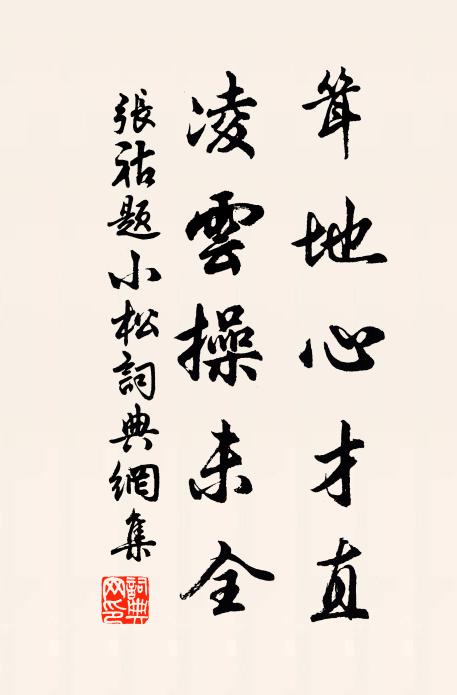 耸地心才直
凌雲操未全
張祜題小松詞典網集
詞典网印